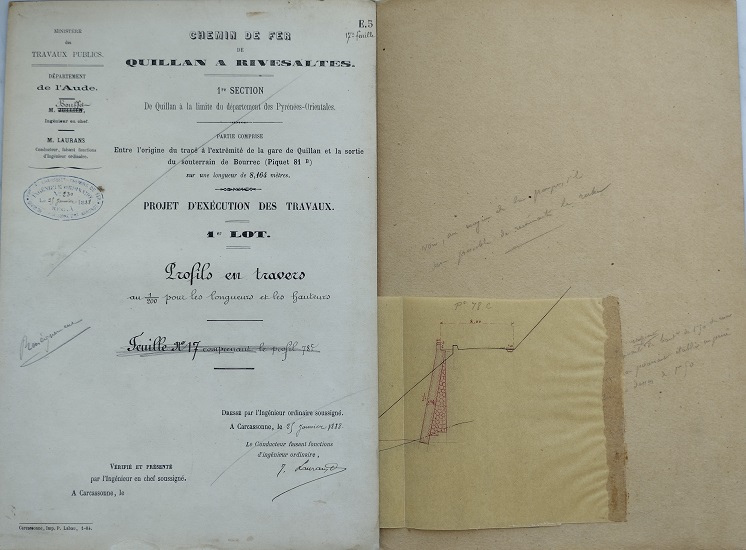 E.5
17e feuille
MINISTÈRE
des
TRAVAUX PUBLICS.
DÉPARTEMENT
de l'Aude.
M. JULLIEN,
Ingénieur en chef.
M. LAURANS
Conducteur, faisant fonctions
d'Ingénieur ordinaire.
CHEMIN DE FER
DE
QUILLAN A RIVESALTES.
1re SECTION
De Quillan à la limite du département des Pyrénées-Orientales.
PARTIE COMPRISE
Entre l'origine du tracé à l'extrémité de la gare de Quillan et la sortie
du souterrain de Bourrec (Piquet 81 D)
sur une longueur de 8,164 mètres.
PROJET D'EXÉCUTION DES TRAVAUX.
1er LOT.
Profils en travers
au 1/200 pour les longueurs et les hauteurs
Feuille No 17 comprenant le profil 78c
DRESSÉ par l'Ingénieur ordinaire soussigné.
A Carcassonne, le 25 Janvier 1888.
Le Conducteur faisant fonctions
d'ingénieur ordinaire,
J. Laurans
VÉRIFIÉ ET PRÉSENTÉ
par l'Ingénieur en chef soussigné.
A Carcassonne, le
Carcassonne, Imp. P. Labau, 1-84.
Po 78 C